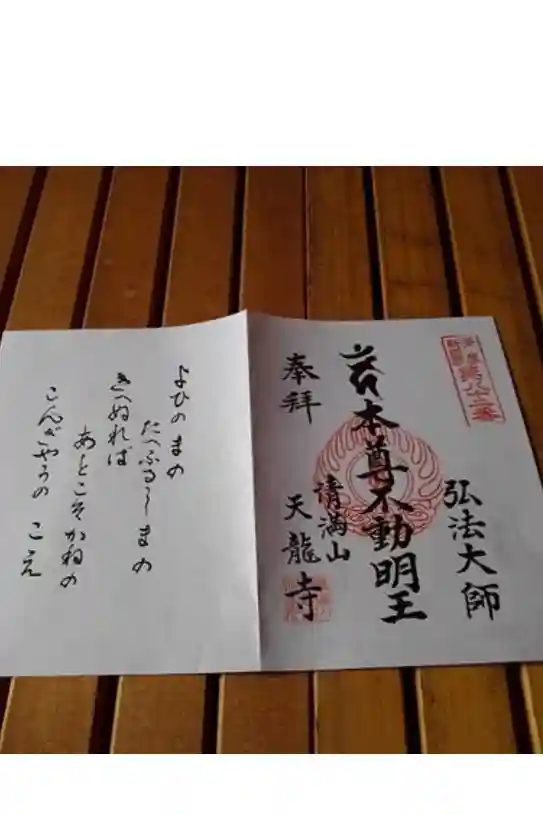 弘法大師
本尊不動明王
奉拝
清満山
天龍寺
よひのまの
たへふるしもの
きへぬれば
あとこそかねの
こんぎやうのこえ